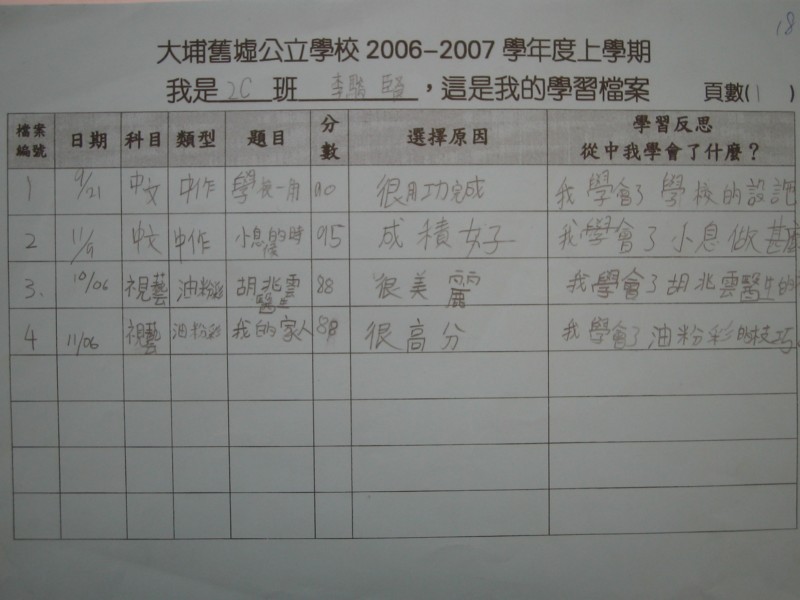 18
大埔舊墟公立學校 2006-2007 學年度上學期
我是 2C 班 李，這是我的學習檔案 頁數(1)
檔案編號 日期 科目 類型 題目 分數 選擇原因 學習反思 從中我學會了什麼？
1 9/21 中文 中作 學校一角 90 很用功完成 我學會了學校的設
2 11/9 中文 中作 小息的時候 95 成積女子 我學會了小息做甚麼
3. 10/06 視藝 油粉彩 胡兆雲醫生 88 很美麗 我學會了胡兆雲醫生的
4 11/06 視藝 油粉彩 我的家人 88 很高分 我學會了油粉彩的技巧